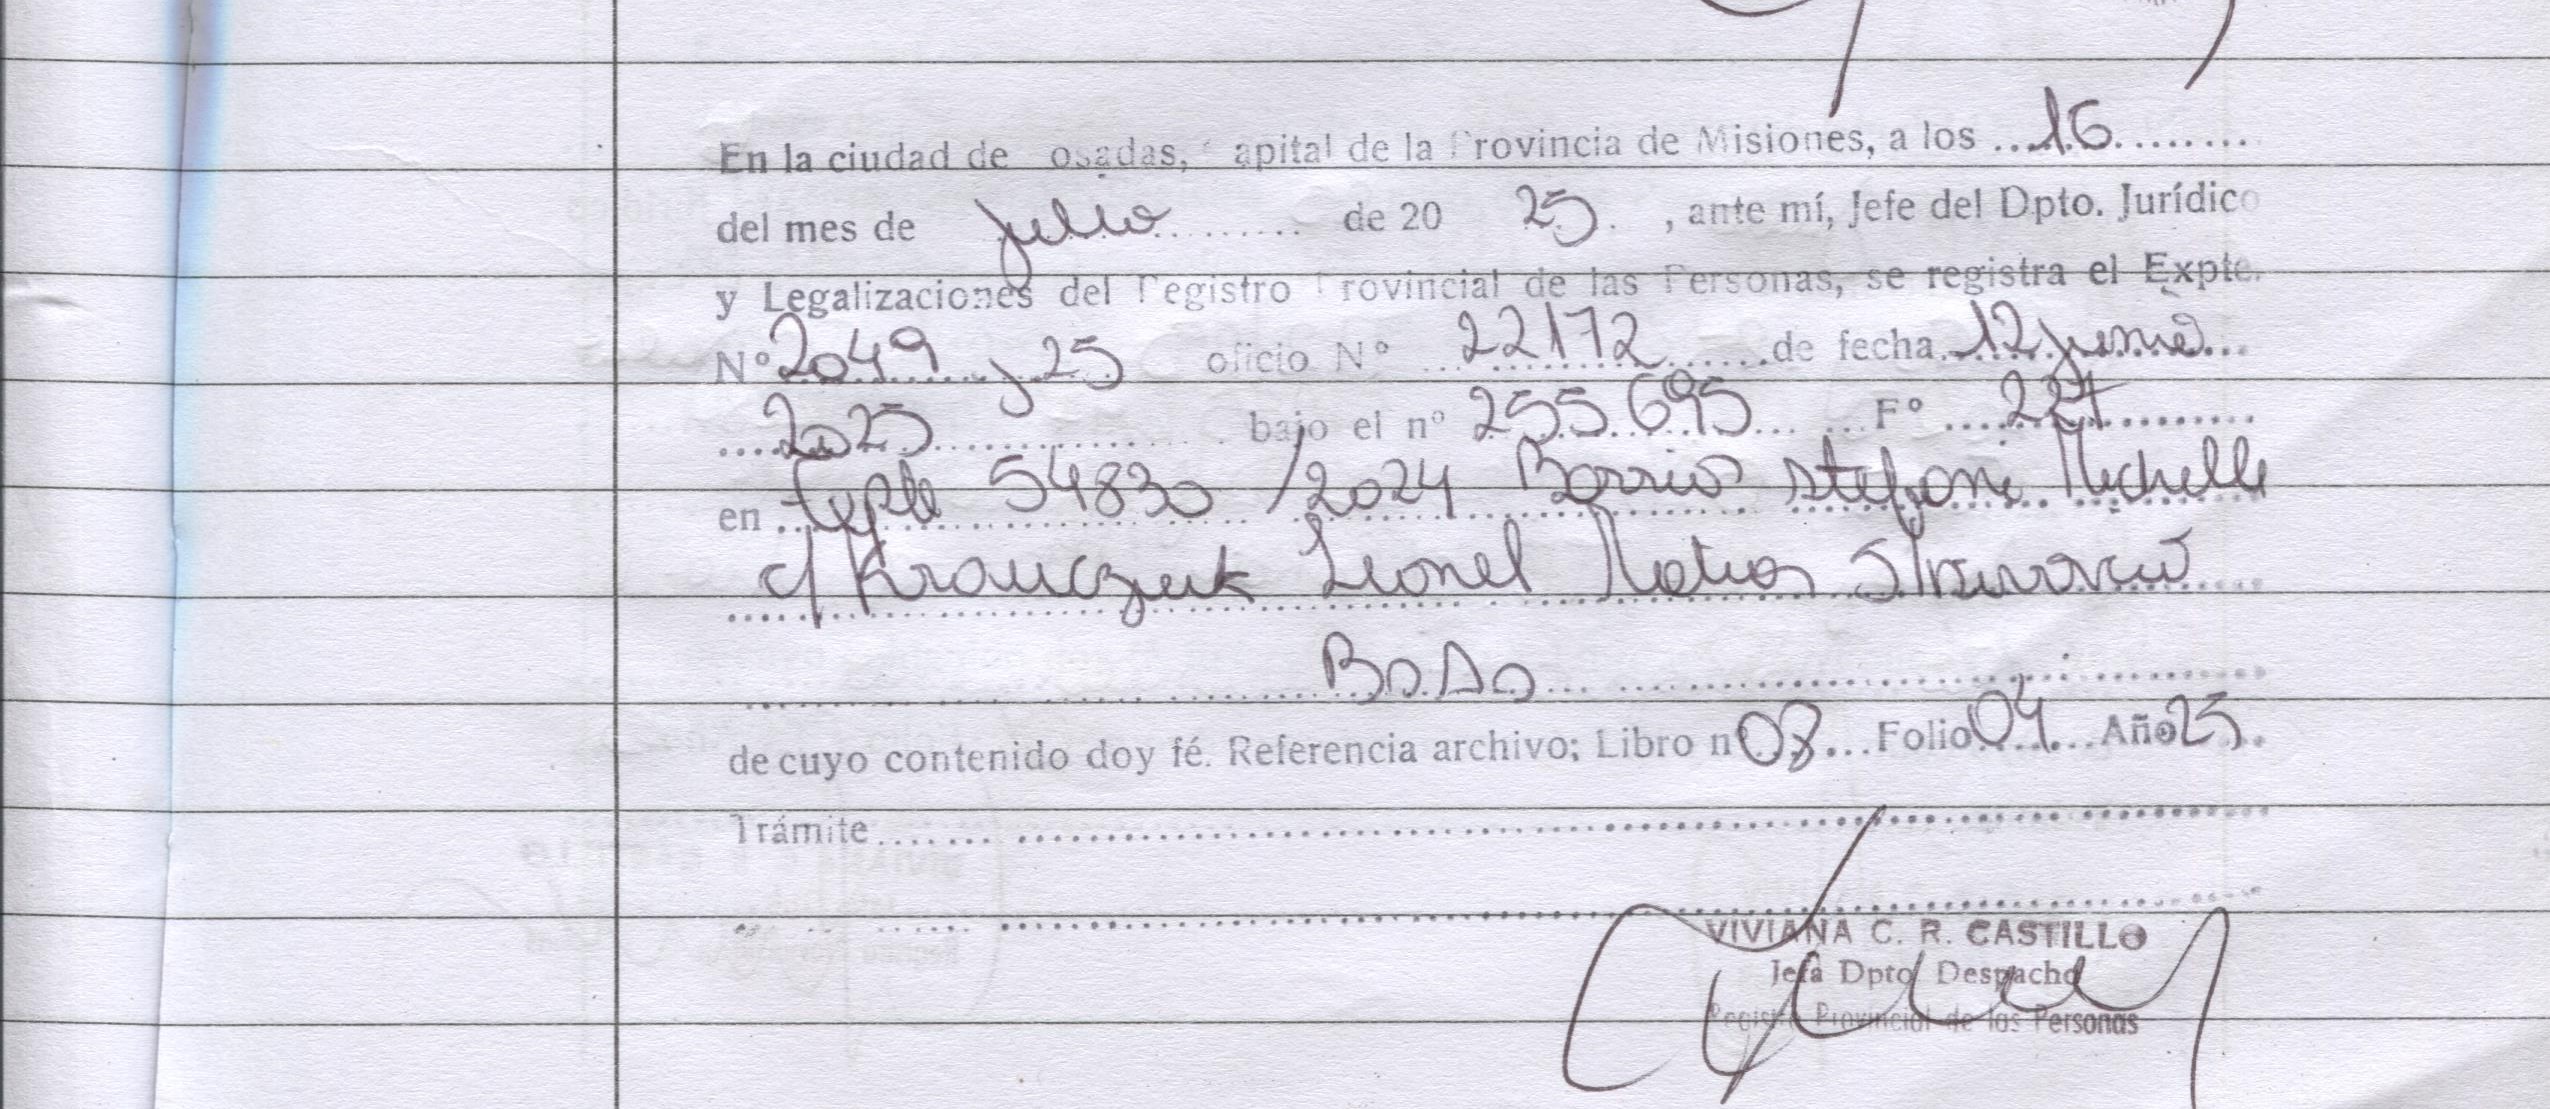 En la ciudad de osadas, apital de la rovincia de Misiones, a los ...16........
del mes de julio ......... de 20 25 , ante mí, Jefe del Dpto. Jurídico
y Legalizaciones del Registro Provincial de las Personas, se registra el Expte.
Nº 2049 y 25 oficio Nº 22172 ......de fecha 12 junio
2025 bajo el nº 255.695 Fº 227
en Expte 54830 /2024 Barrios Stefani Michelle
c/ Krauczuk Lionel Matias S/
de cuyo contenido doy fé. Referencia archivo; Libro nº 08 ...Folio 04 ...Año 25
Trámite
VIVIANA C. R. CASTILLO
Jefa Dpto Despacho
Registro Provincial de las Personas